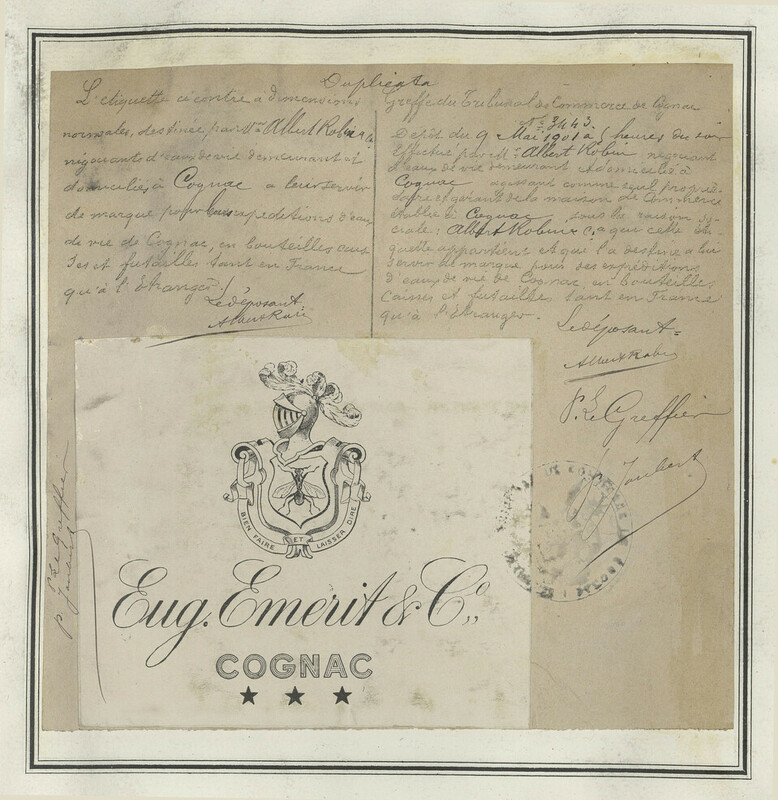 Duplicata
L'etiquette ci contre à dimensions
normales, destinée par Mrs Albert Robin & Co
négociants d'eaux de vie demeurant et
domiciliés à Cognac a leur servir
de marque pour leurs expeditions d'eaux
de vie de Cognac, en bouteilles, cais
ses et futailles tant en France
qu'à l'étranger./.
Le déposant.
Albert Robin
Greffe du Tribunal de Commerce de Cognac
No 3443.
Dépôt du 9 Mai 1901 à 5 heures du soir
Effectué par Mr Albert Robin négociant
d'eaux de vie demeurant et domicilié à
Cognac agissant comme seul proprié-
taire et gérant de la maison de Commerce
établie à Cognac sous la raison so-
ciale: Albert Robin & Co, a qui cette éti-
quette appartient et qui l'a destine a lui
servir de marque pour ses expéditions
d'eaux de vie de Cognac, en bouteilles,
caisses et futailles tant en France
qu'à l'Etranger.
Le déposant=
Albert Robin
P. Le Greffier
Joubert
P. Le Greffier
Joubert
BIEN FAIRE ET LAISSER DIRE
Eug. Emerit & Co.,
COGNAC
★ ★ ★